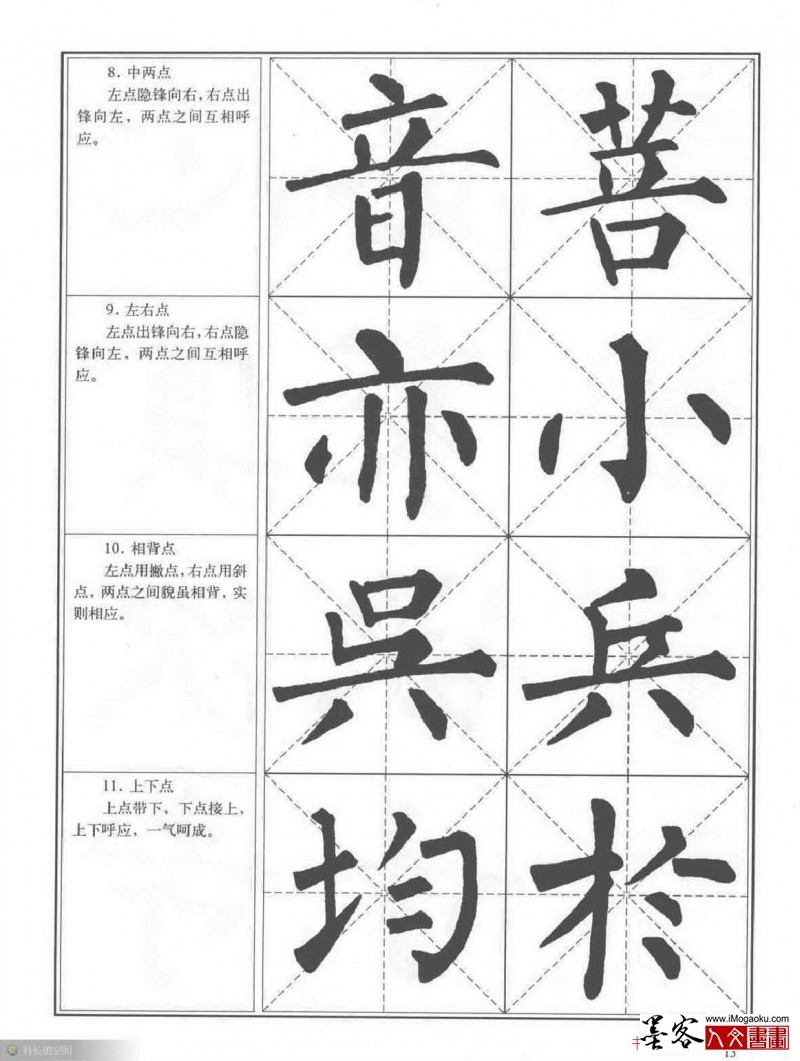 8. 中两点
左点隐锋向右，右点出
锋向左，两点之间互相呼
应。
音 菩
9. 左右点
左点出锋向右，右点隐
锋向左，两点之间互相呼
应。
亦 小
10. 相背点
左点用撇点，右点用斜
点，两点之间貌虽相背，实
则相应。
吳 兵
11. 上下点
上点带下，下点接上，
上下呼应，一气呵成。
均 於
www.iMogaoku.com
墨客
人文書畫
科长的空间
13